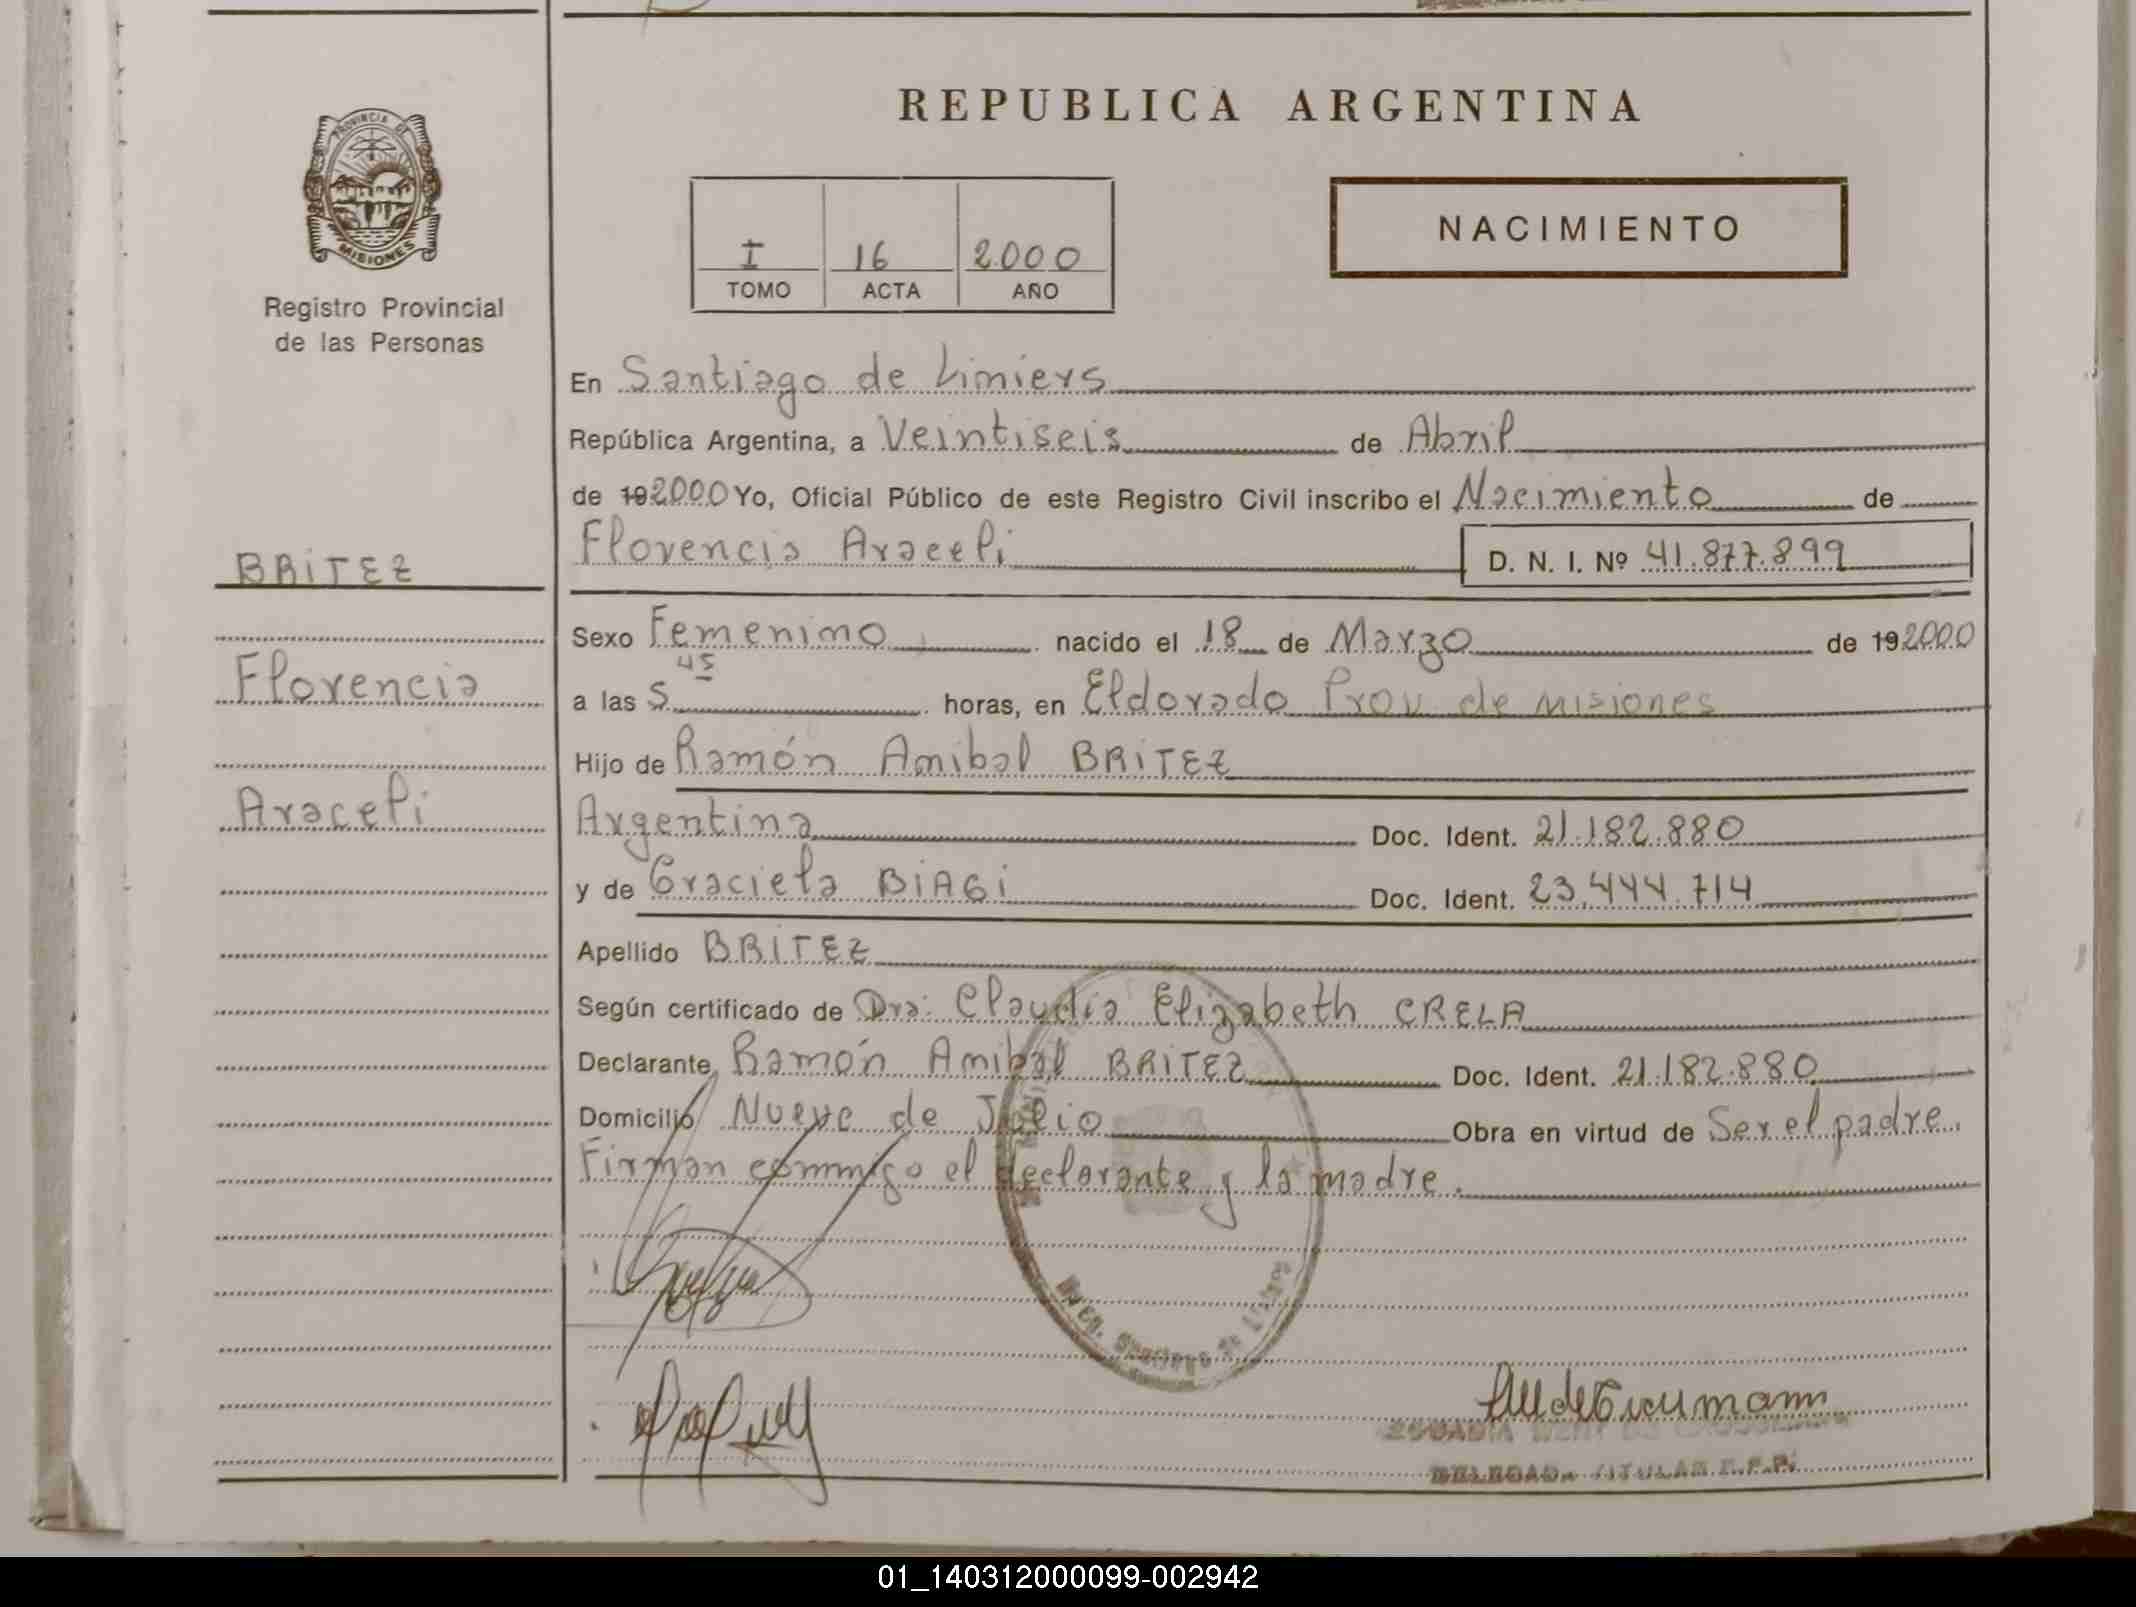 REPUBLICA ARGENTINA
PROVINCIA DE
MISIONES
Registro Provincial
de las Personas
NACIMIENTO
I 16 2.000
TOMO ACTA AÑO
En Santiago de Liniers
República Argentina, a Veintiseis de Abril
de 192000 Yo, Oficial Público de este Registro Civil inscribo el Nacimiento de
BRITEZ
Florencia Araceli D. N. I. Nº 41.877.899
Sexo Femenino nacido el 18 de Marzo de 192000
Florencia
a las 5 45 horas, en Eldorado Prov de Misiones
Hijo de Ramón Anibal BRITEZ
Araceli
Argentina Doc. Ident. 21.182.880
y de Graciela BIAGI Doc. Ident. 23.444.714
Apellido BRITEZ
Según certificado de Dra: Claudia Elizabeth CRELA
Declarante Ramón Anibal BRITEZ Doc. Ident. 21.182.880
Domicilio Nueve de Julio Obra en virtud de Ser el padre.
Firman conmigo el declarante y la madre.
DELEGADA TITULAR R.P.P.
01_140312000099-002942